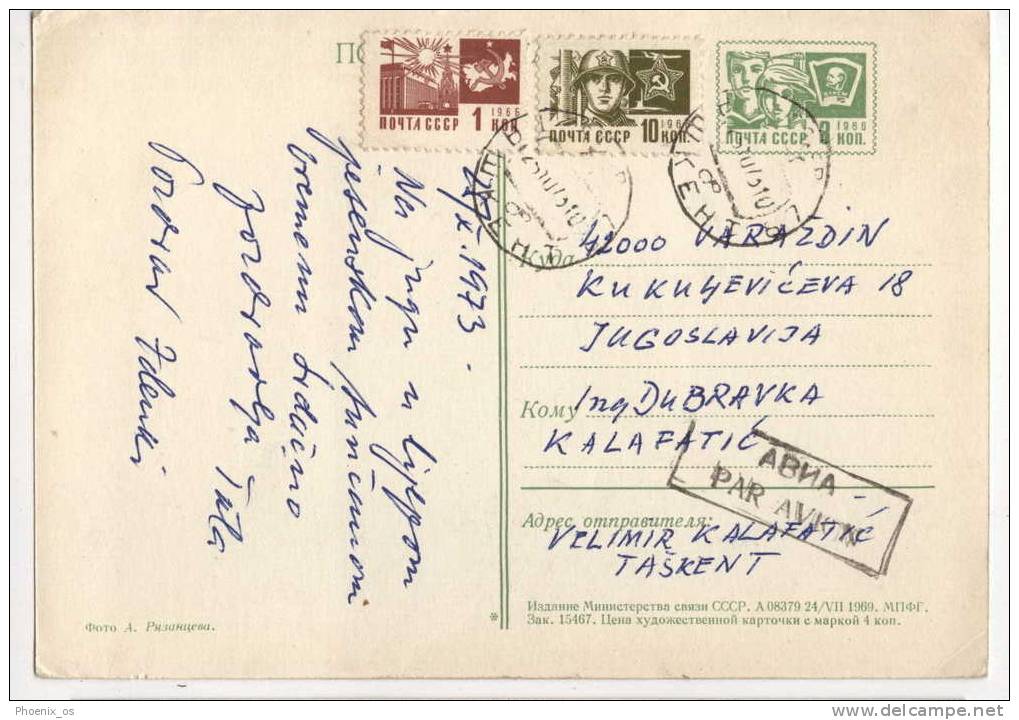 ПОЧТА СССР 1 КОП. 1966
ПОЧТА СССР 10 КОП. 1966
ПОЧТА СССР 3 КОП. 1966
X. 1973.
Na jugu u lijepom
jesenskom sunčanom
vremenu srdačno
pozdravlja Tata
Pozdrav Zdenki
Куда 42000 VARAŽDIN
KUKULJEVIĆEVA 18
JUGOSLAVIJA
Кому Ing DUBRAVKA
KALAFATIĆ
АВИА
PAR AVION
Адрес отправителя:
VELIMIR KALAFATIĆ
TAŠKENT
Издание Министерства связи СССР. А 08379 24/VII 1969. МПФГ.
Зак. 15467. Цена художественной карточки с маркой 4 коп.
Фото А. Рязанцева.
*
Phoenix_os
delcampe.net